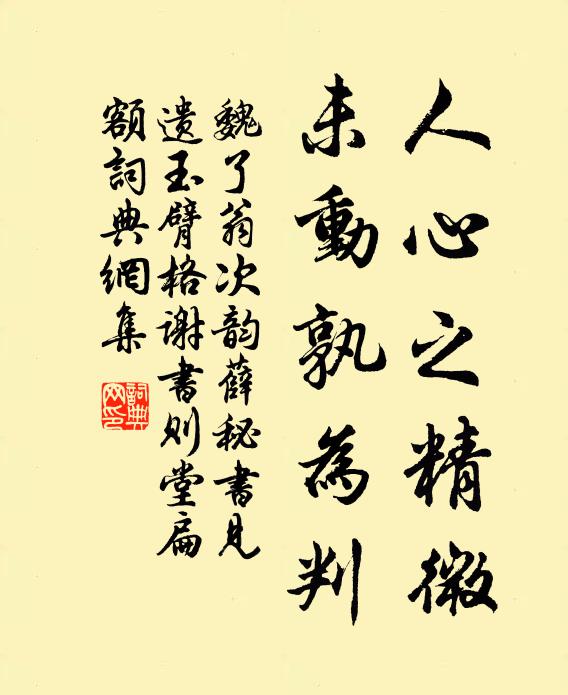 人心之精微
未動孰為判
魏了翁次韵薛秘書見
遺玉臂格谢書则堂扁
額詞典網集
詞典网印